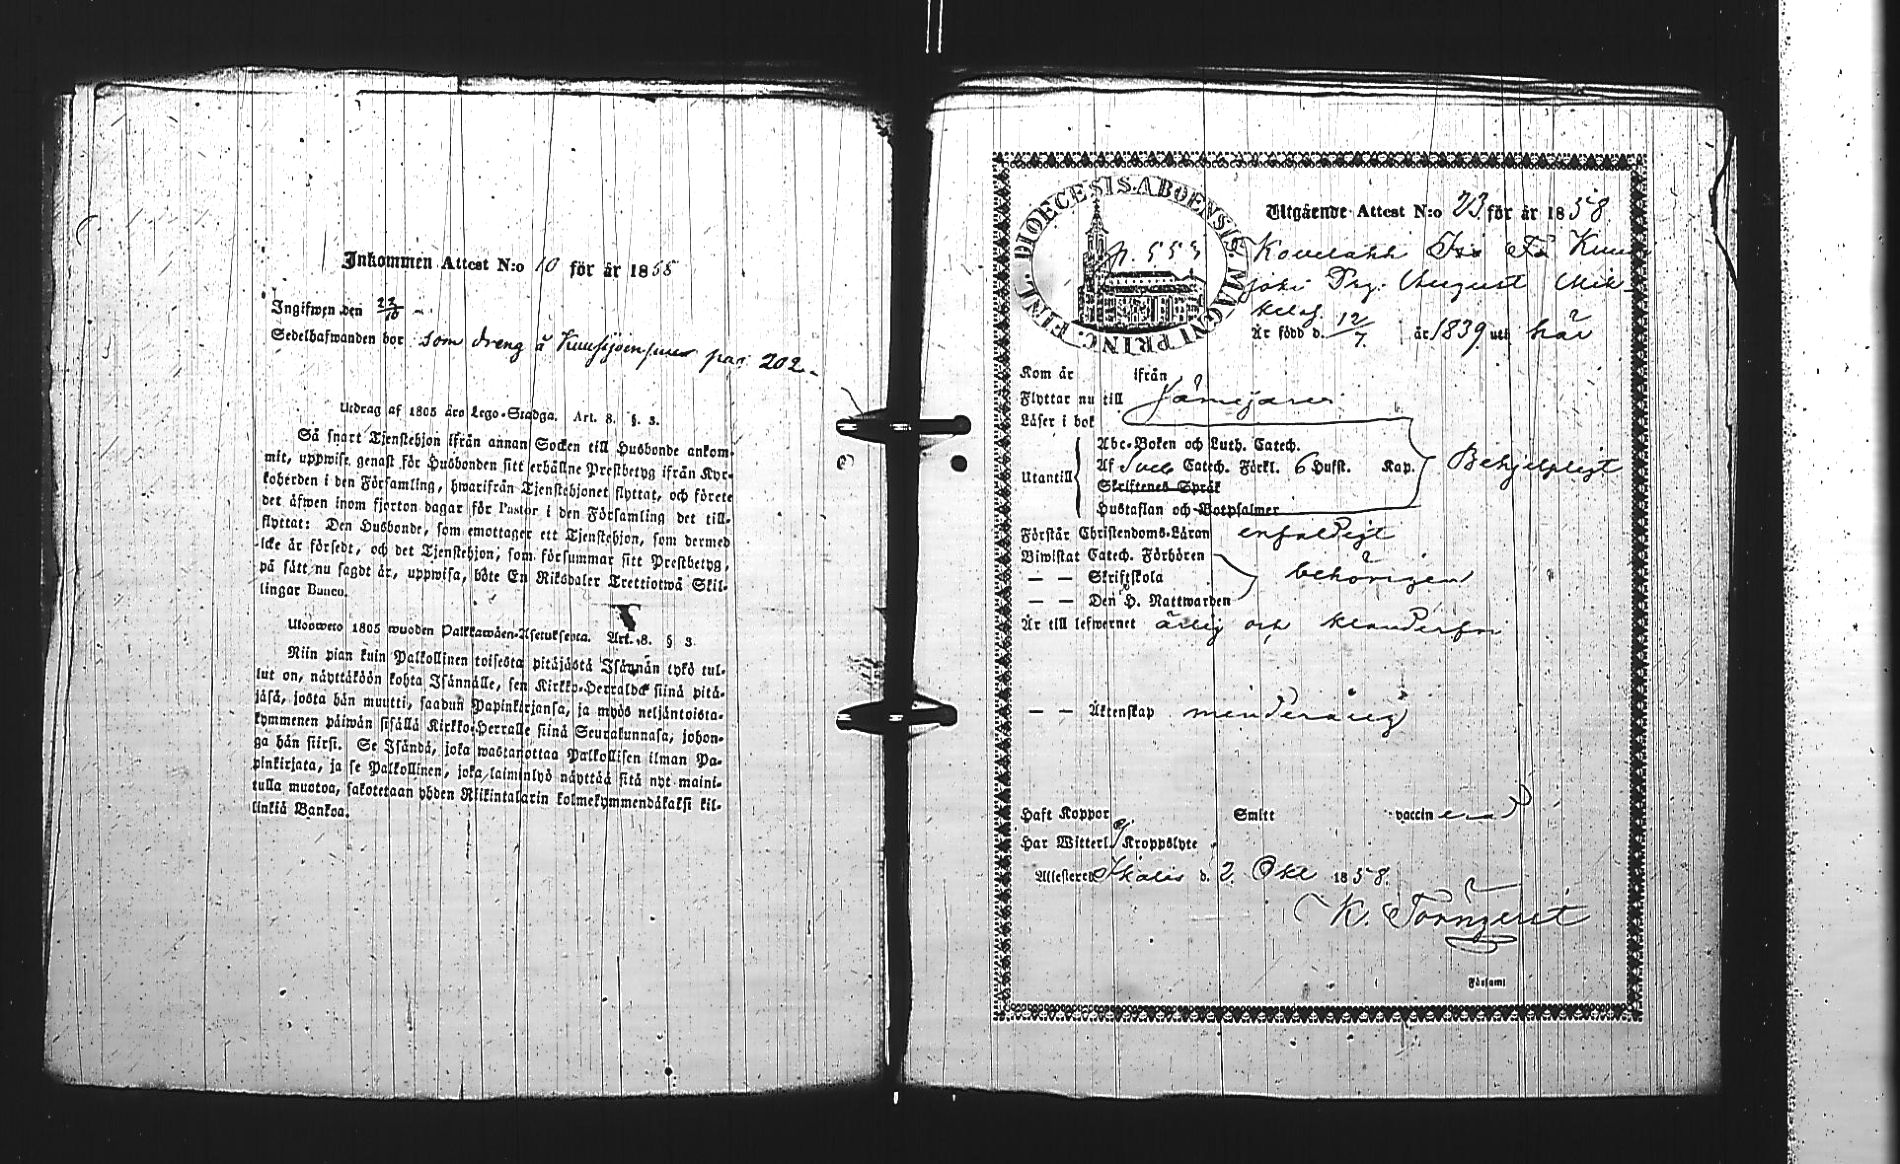 Inkommen Attest N:o 10 för år 1858
Ingifwen den 22/10
Sedelhafwanden bor som dreng å pag: 202
Utdrag af 1805 års Lego-Stadga. Art. 8. §. 3.
Så snart Tjenstehjon ifrån annan Socken till Husbonde ankom-
mit, uppwise genast för Husbonden sitt erhållne Prestbetyg ifrån Kyr-
koherden i den Församling, hwarifrån Tjenstehjonet flyttat, och förete
det äfwen inom fjorton dagar för Pastor i den Församling det till-
flyttat: Den Husbonde, som emottager ett Tjenstehjon, som dermed
icke är försedt, och det Tjenstehjon, som försummar sitt Prestbetyg,
på sätt nu sagdt är, uppwisa, böte En Riksdaler Trettiotwå Skil-
lingar Banco.
Ulosweto 1805 wuoden Palkkawäen-Asetuksesta. Art. 8. § 3.
Niin pian kuin Palkollinen toisesta pitäjästä Isännän tykö tul-
lut on, näyttäköön kohta Isännälle, sen Kirkko-Herralda siinä pitä-
jäsä, josta hän muutti, saadun Papinkirjansa, ja myös neljäntoista-
kymmenen päiwän sisällä Kirkko-Herralle siinä Seurakunnasa, johon-
ga hän siirsi. Se Isändä, joka wastanottaa Palkollisen ilman Pa-
pinkirjata, ja se Palkollinen, joka laiminlyö näyttää sitä nyt maini-
tulla muotoa, sakotetaan yhden Riikintalarin kolmekymmendäkaksi kil-
linkiä Bankoa.
DIOECESIS. ABOENSIS. MAGNI PRINC. FINL.
p. 553
Utgående Attest N:o 73 för år 1858
Kouelahh
joki Drg. August Mik-
kelsf.
Är född d. 12/7 år 1839 uti här
Kom år ifrån
Flyttar nu till
Läser i bok
Abc-Boken och Luth. Catech.
Utantill Af Sveb Catech. Förkl. 6 Hufst. Kap. Behjelpligt
Skriftenes Språk
Hustaflan och Botpsalmer
Förstår Christendoms-Läran enfaldigt
Biwistat Catech. Förhören
— — Skriftskola behörigen
— — Den H. Nattwarden
Är till lefwernet ärlig och klanderfri
— — Äktenskap minderårig
Haft Koppor Smitt vaccinerad
Har Witterl. ej Kroppslyte
Attesterar Ikalis d. 2 Okt 1858.
K.
Församl